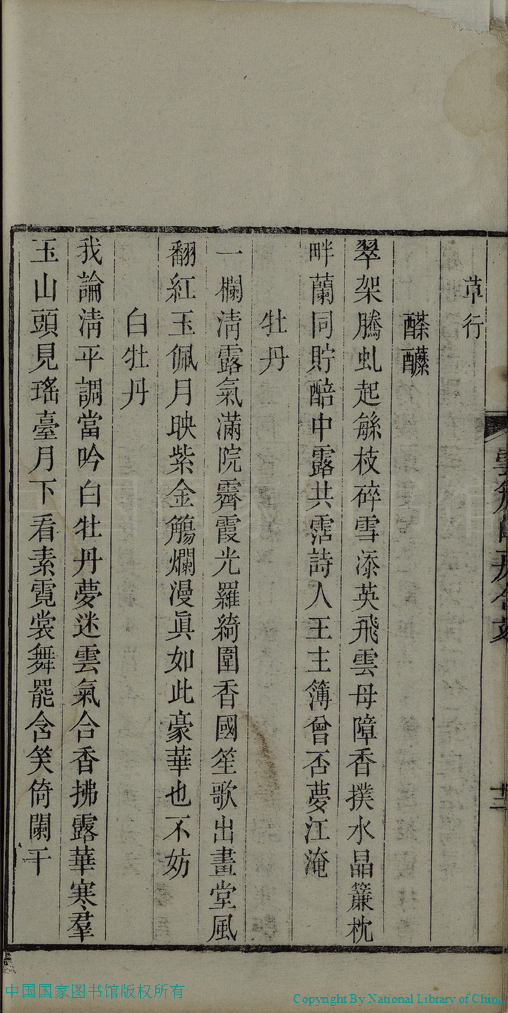 草行
醾醿
翠架騰虬起緐枝碎雪添英飛雲母障香撲水晶簾枕
畔蘭同貯醅中露共霑詩人王主簿曾否夢江淹
牡丹
一欄清露氣滿院霽霞光羅綺圍香國笙歌出畫堂風
翻紅玉佩月映紫金觴爛漫眞如此豪華也不妨
白牡丹
我論清平調當吟白牡丹夢迷雲氣合香拂露華寒羣
玉山頭見瑤臺月下看素霓裳舞罷含笑倚闌干
中国国家图书馆版权所有
Copyright By National Library of China